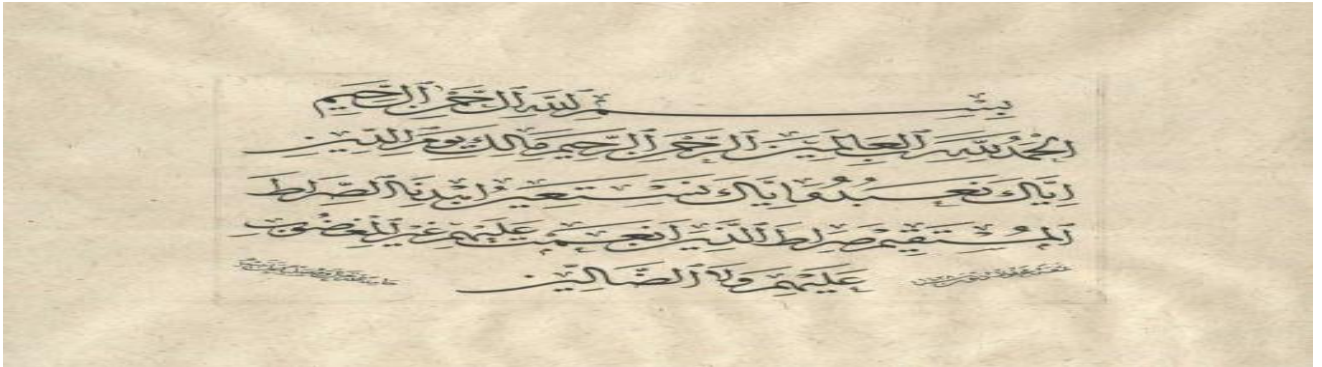 بسم الله الرحمن الرحيم
الحمد لله رب العالمين الرحمن الرحيم مالك يوم الدين
إياك نعبد وإياك نستعين اهدنا الصراط
المستقيم صراط الذين أنعمت عليهم غير المغضوب
عليهم ولا الضالين